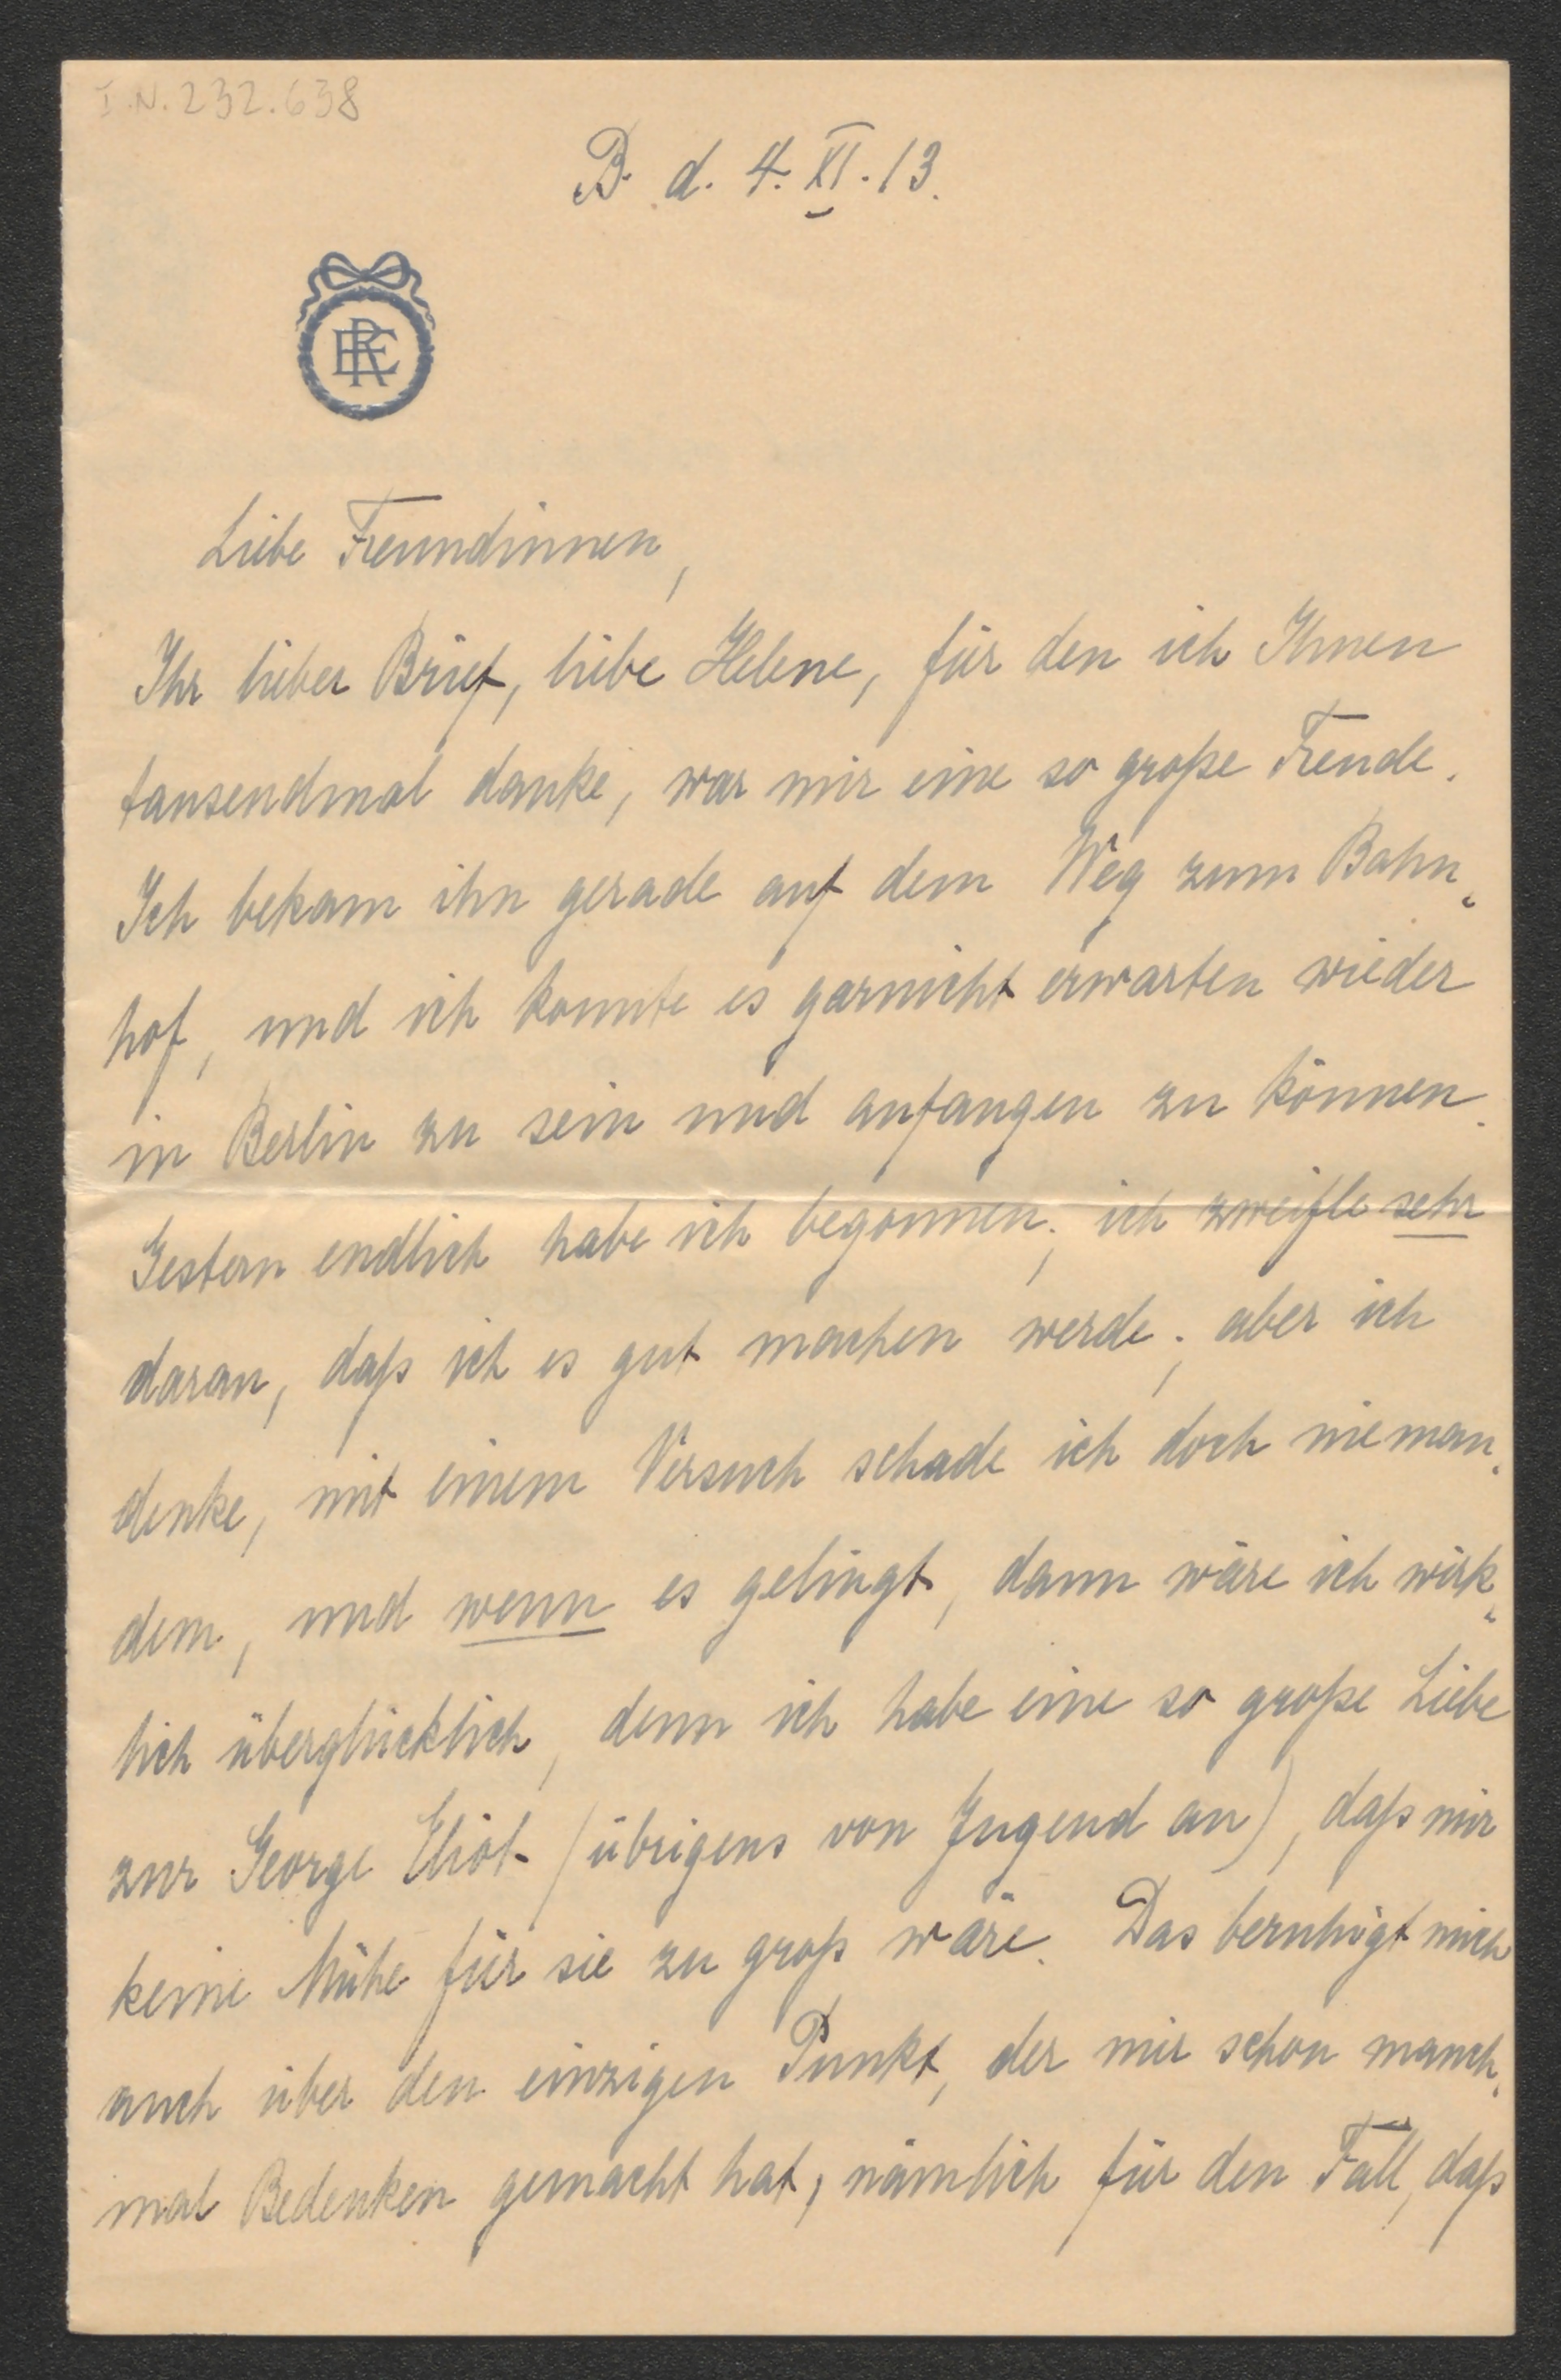 I.N. 232.638
B. d. 4. XI. 13.
ERC
Liebe Freundinnen,
Ihr lieber Brief, liebe Helene, für den ich Ihnen
tausendmal danke, war mir eine so große Freude.
Ich bekam ihn gerade auf dem Weg zum Bahn-
hof, und ich konnte es garnicht erwarten wieder
in Berlin zu sein und anfangen zu können.
Gestern endlich habe ich begonnen; ich zweifle sehr
daran, daß ich es gut machen werde; aber ich
denke, mit einem Versuch schade ich doch nieman-
dem, und wenn es gelingt, dann wäre ich wirk-
lich überglücklich, denn ich habe eine so große Liebe
zur George Eliot (übrigens von Jugend an), daß mir
keine Mühe für sie zu groß wäre. Das beruhigt mich
auch über den einzigen Punkt, der mir schon manch-
mal Bedenken gemacht hat, nämlich für den Fall, daß